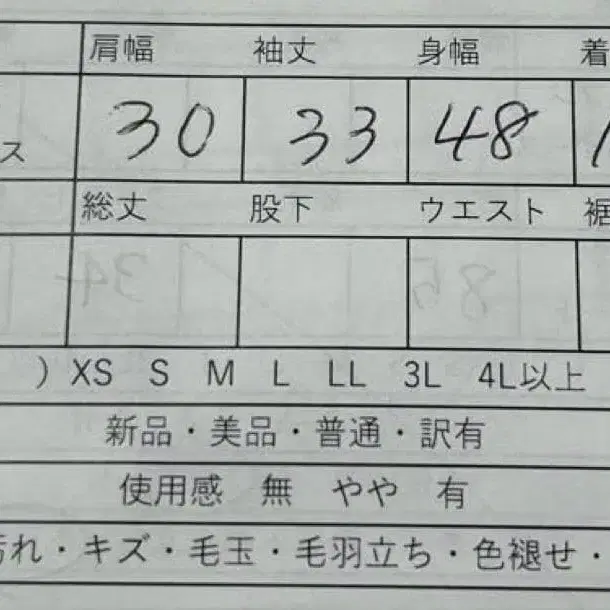 肩幅 袖丈 身幅 着
ス 30 33 48 1
総丈 股下 ウエスト 裾
) XS S M L LL 3L 4L以上
新品・美品・普通・訳有
使用感 無 やや 有
汚れ・キズ・毛玉・毛羽立ち・色褪せ・